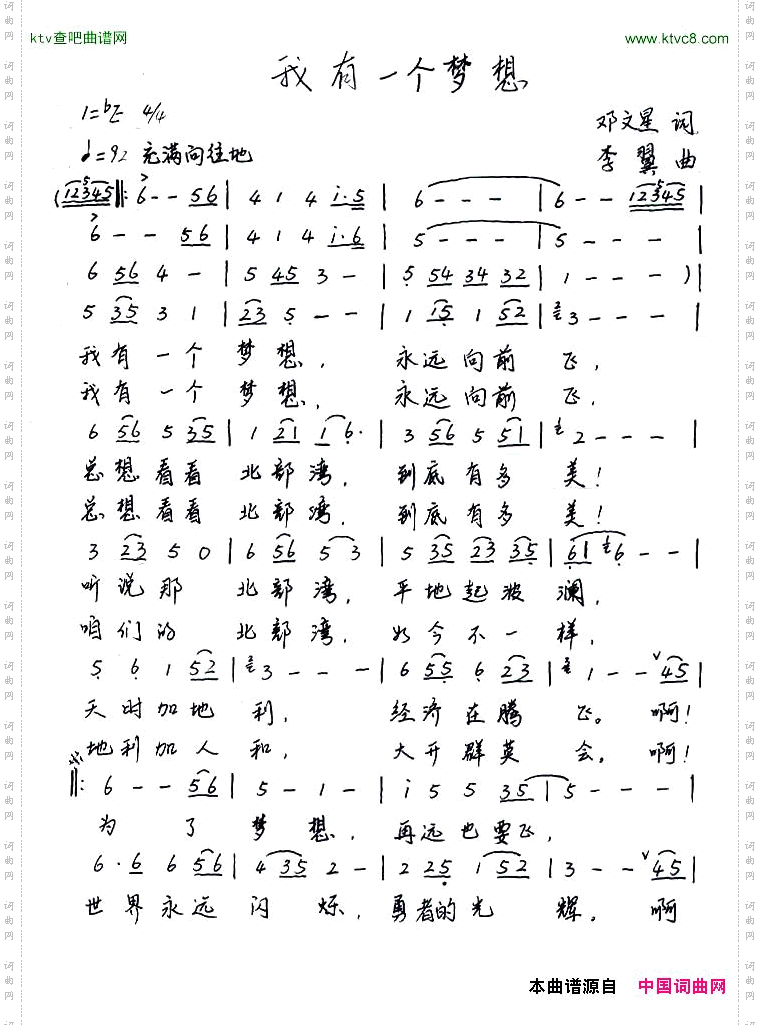 ktv查吧曲谱网
www.ktvc8.com
我有一个梦想
1=bE 4/4
邓文星 词
♩=92 充满向往地
李翼 曲
(12345 ‖: 6 - - 56 | 4 1 4 i·5 | 6 - - - | 6 - - 12345 |
6 - - 56 | 4 1 4 i·6 | 5 - - - | 5 - - - |
6 56 4 - | 5 45 3 - | 5 54 34 32 | 1 - - - ) |
5 35 3 1 | 23 5 - - | 1 15 1 52 | 3 - - - |
我有一个梦想, 永远向前飞,
我有一个梦想, 永远向前飞,
6 56 5 35 | 1 21 1 6· | 3 56 5 51 | 2 - - - |
总想看看北部湾, 到底有多美!
总想看看北部湾, 到底有多美!
3 23 5 0 | 6 56 5 3 | 5 35 23 35 | 61 6 - - |
听说那北部湾, 平地起波澜,
咱们的北部湾, 如今不一样,
5 6 1 52 | 3 - - - | 6 55 6 23 | 1 - - 45 |
天时加地利, 经济在腾飞。啊!
地利加人和, 大开群英会。啊!
‖: 6 - - 56 | 5 - 1 - | i 5 5 35 | 5 - - - |
为了梦想, 再远也要飞,
6·6 6 56 | 4 35 2 - | 2 25 1 52 | 3 - - 45 |
世界永远闪烁, 勇者的光辉。啊
本曲谱源自 中国词曲网
词曲网